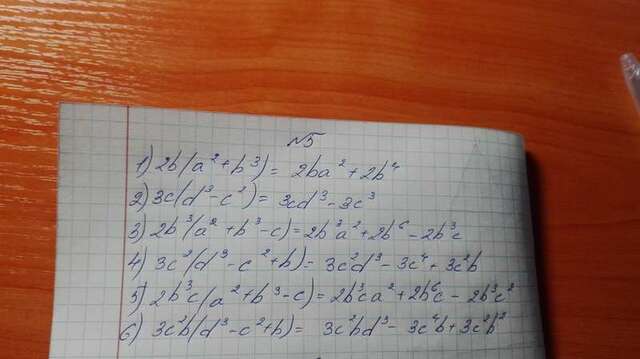 №5
1) 2b(a²+b³)= 2ba²+2b⁴
2) 3c(d³-c²)= 3cd³-3c³
3) 2b³(a²+b³-c)=2b³a²+2b⁶-2b³c
4) 3c²(d³-c²+b)= 3c²d³-3c⁴+3c²b
5) 2b³c(a²+b³-c)=2b³ca²+2b⁶c-2b³c²
6) 3c²b(d³-c²+b)= 3c²bd³-3c⁴b+3c²b²